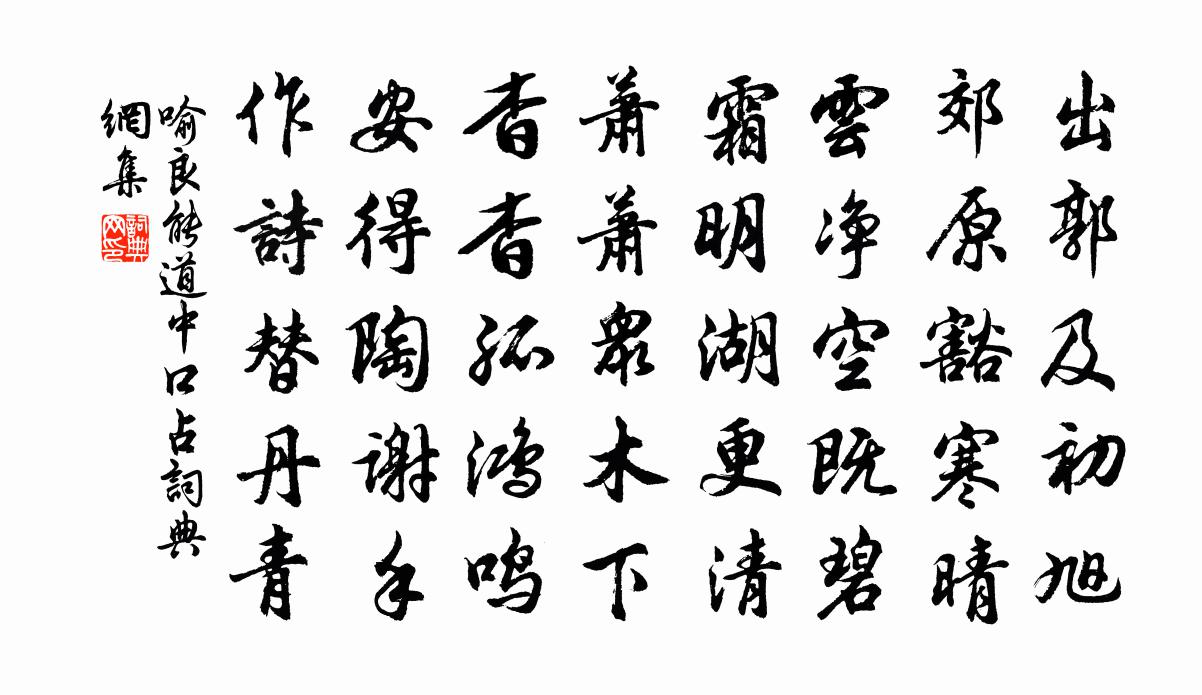 出郭及初旭
郊原豁寒晴
雲净空既碧
霜明湖更清
蕭蕭衆木下
杳杳孤鸿鸣
安得陶谢手
作詩替丹青
喻良能道中口占詞典
網集
詞典
网印